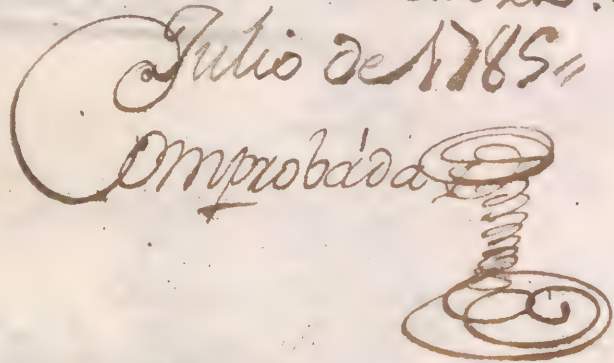 Julio de 1785 =
Comprobáda